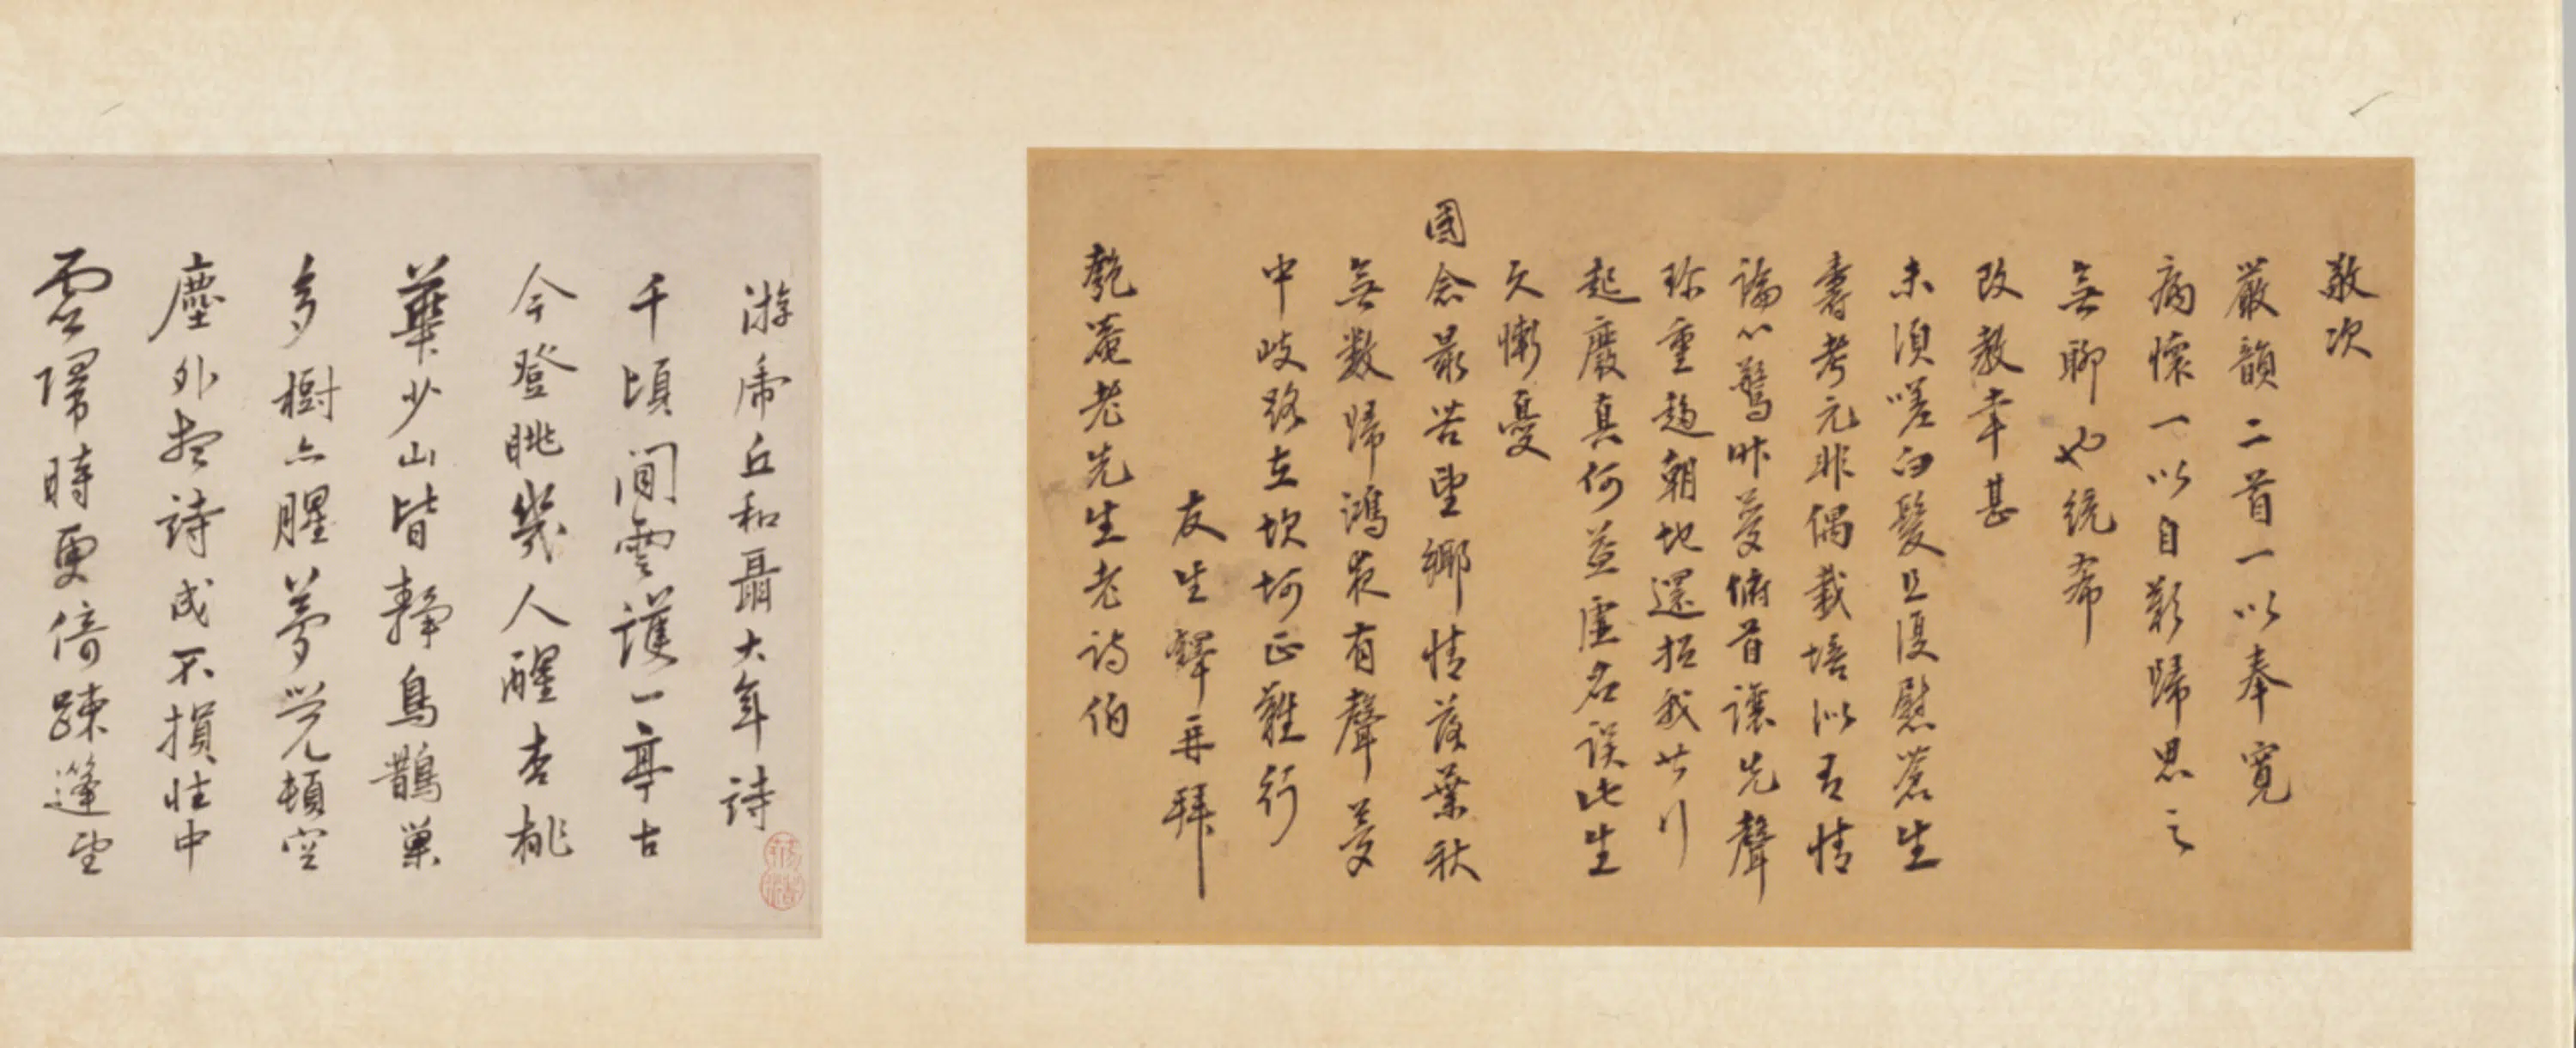 敬次
嚴韻二首一以奉寬
病懷一以自影歸思之
無聊也統希
改教幸甚
未須嗟白髮且復慰蒼生
壽考元非偶栽培似有情
論心驚昨夢俯首讓先聲
珍重趨朝地還招我共行
起廢真何益虛名誤此生
久慚憂
國念最苦望鄉情落葉秋
無數歸鴻夜有聲夢
中岐路在坎坷正難行
友生鐸再拜
匏菴老先生老詩伯
游虎丘和聶大年詩
千頃閒雲護一亭古
今登眺幾人醒杏桃
華少山皆靜鳥鵲巢
多樹亦腥夢覺頓空
塵外想詩成不損性中
靈歸時更倚疎篷望